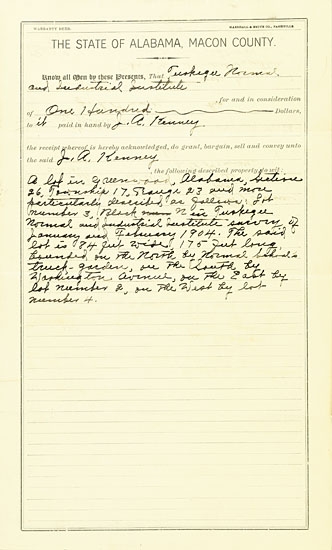 WARRANTY DEED.
MARSHALL & BRUCE CO., NASHVILLE
THE STATE OF ALABAMA, MACON COUNTY.
Know all Men by these Presents, That Tuskegee Normal
and Industrial Institute
, for and in consideration
of One Hundred Dollars,
to it paid in hand by J. A. Kenney
the receipt whereof is hereby acknowledged, do grant, bargain, sell and convey unto
the said J. A. Kenney
, the following described property, to-wit:
A lot in Greenwood, Alabama, Section
26, Township 17, Range 23 and more
particularly described as follows: Lot
number 3, Block N in Tuskegee
Normal and Industrial Institute survey of
January and February 1904. The said
lot is 84 feet wide, 175 feet long,
bounded on the North by Normal School's
truck-garden, on the South by
Washington Avenue, on the East by
lot number 2, on the West by lot
number 4.